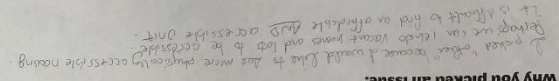 Why you picked an issue:
I picked "other" because I would like to see more physically accessible housing
Perhaps we can rehab vacant homes and lots to be accessible.
It is difficult to find an affordable AND accessible unit.